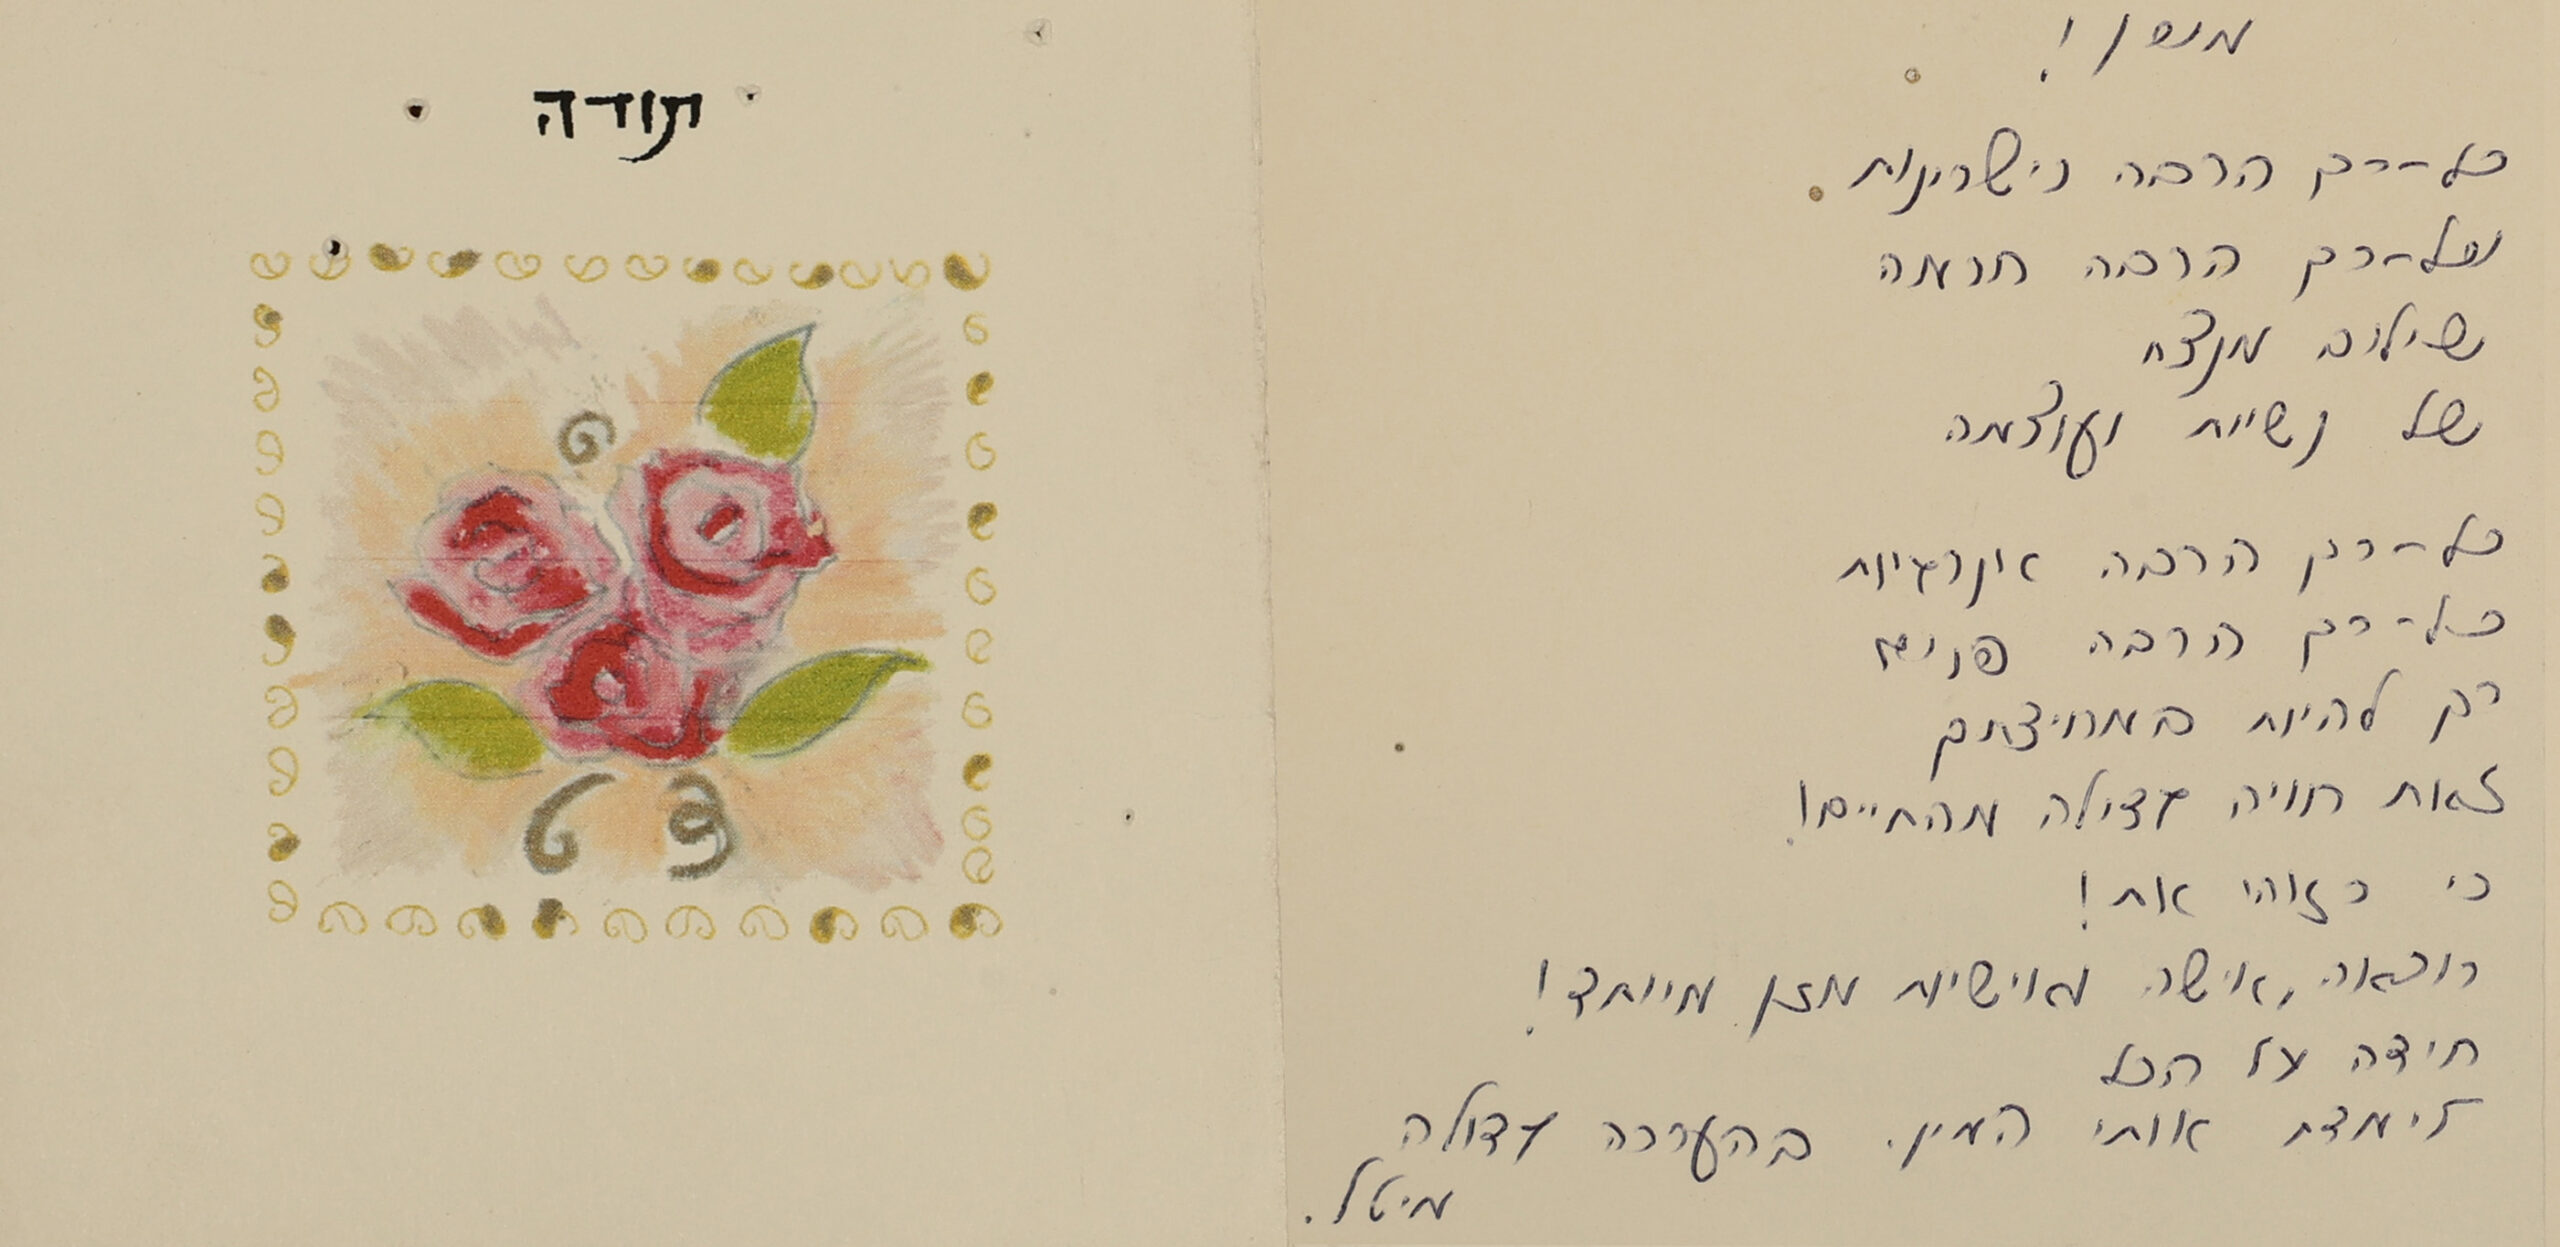 תודה
כל-כך הרבה כישרונות
וכל-כך הרבה חכמה
שילוב מנצח
של נשיות ועוצמה
כל-כך הרבה אינרגיות
כל-כך הרבה פנים
רק להיות במחיצתך
זאת חוויה גדולה מהחיים!
כי כזוהי את!
רופאה, אישה ואישיות מזן מיוחד!
תודה על הכל
לימדת אותי המון. בהערכה גדולה
מיטל.